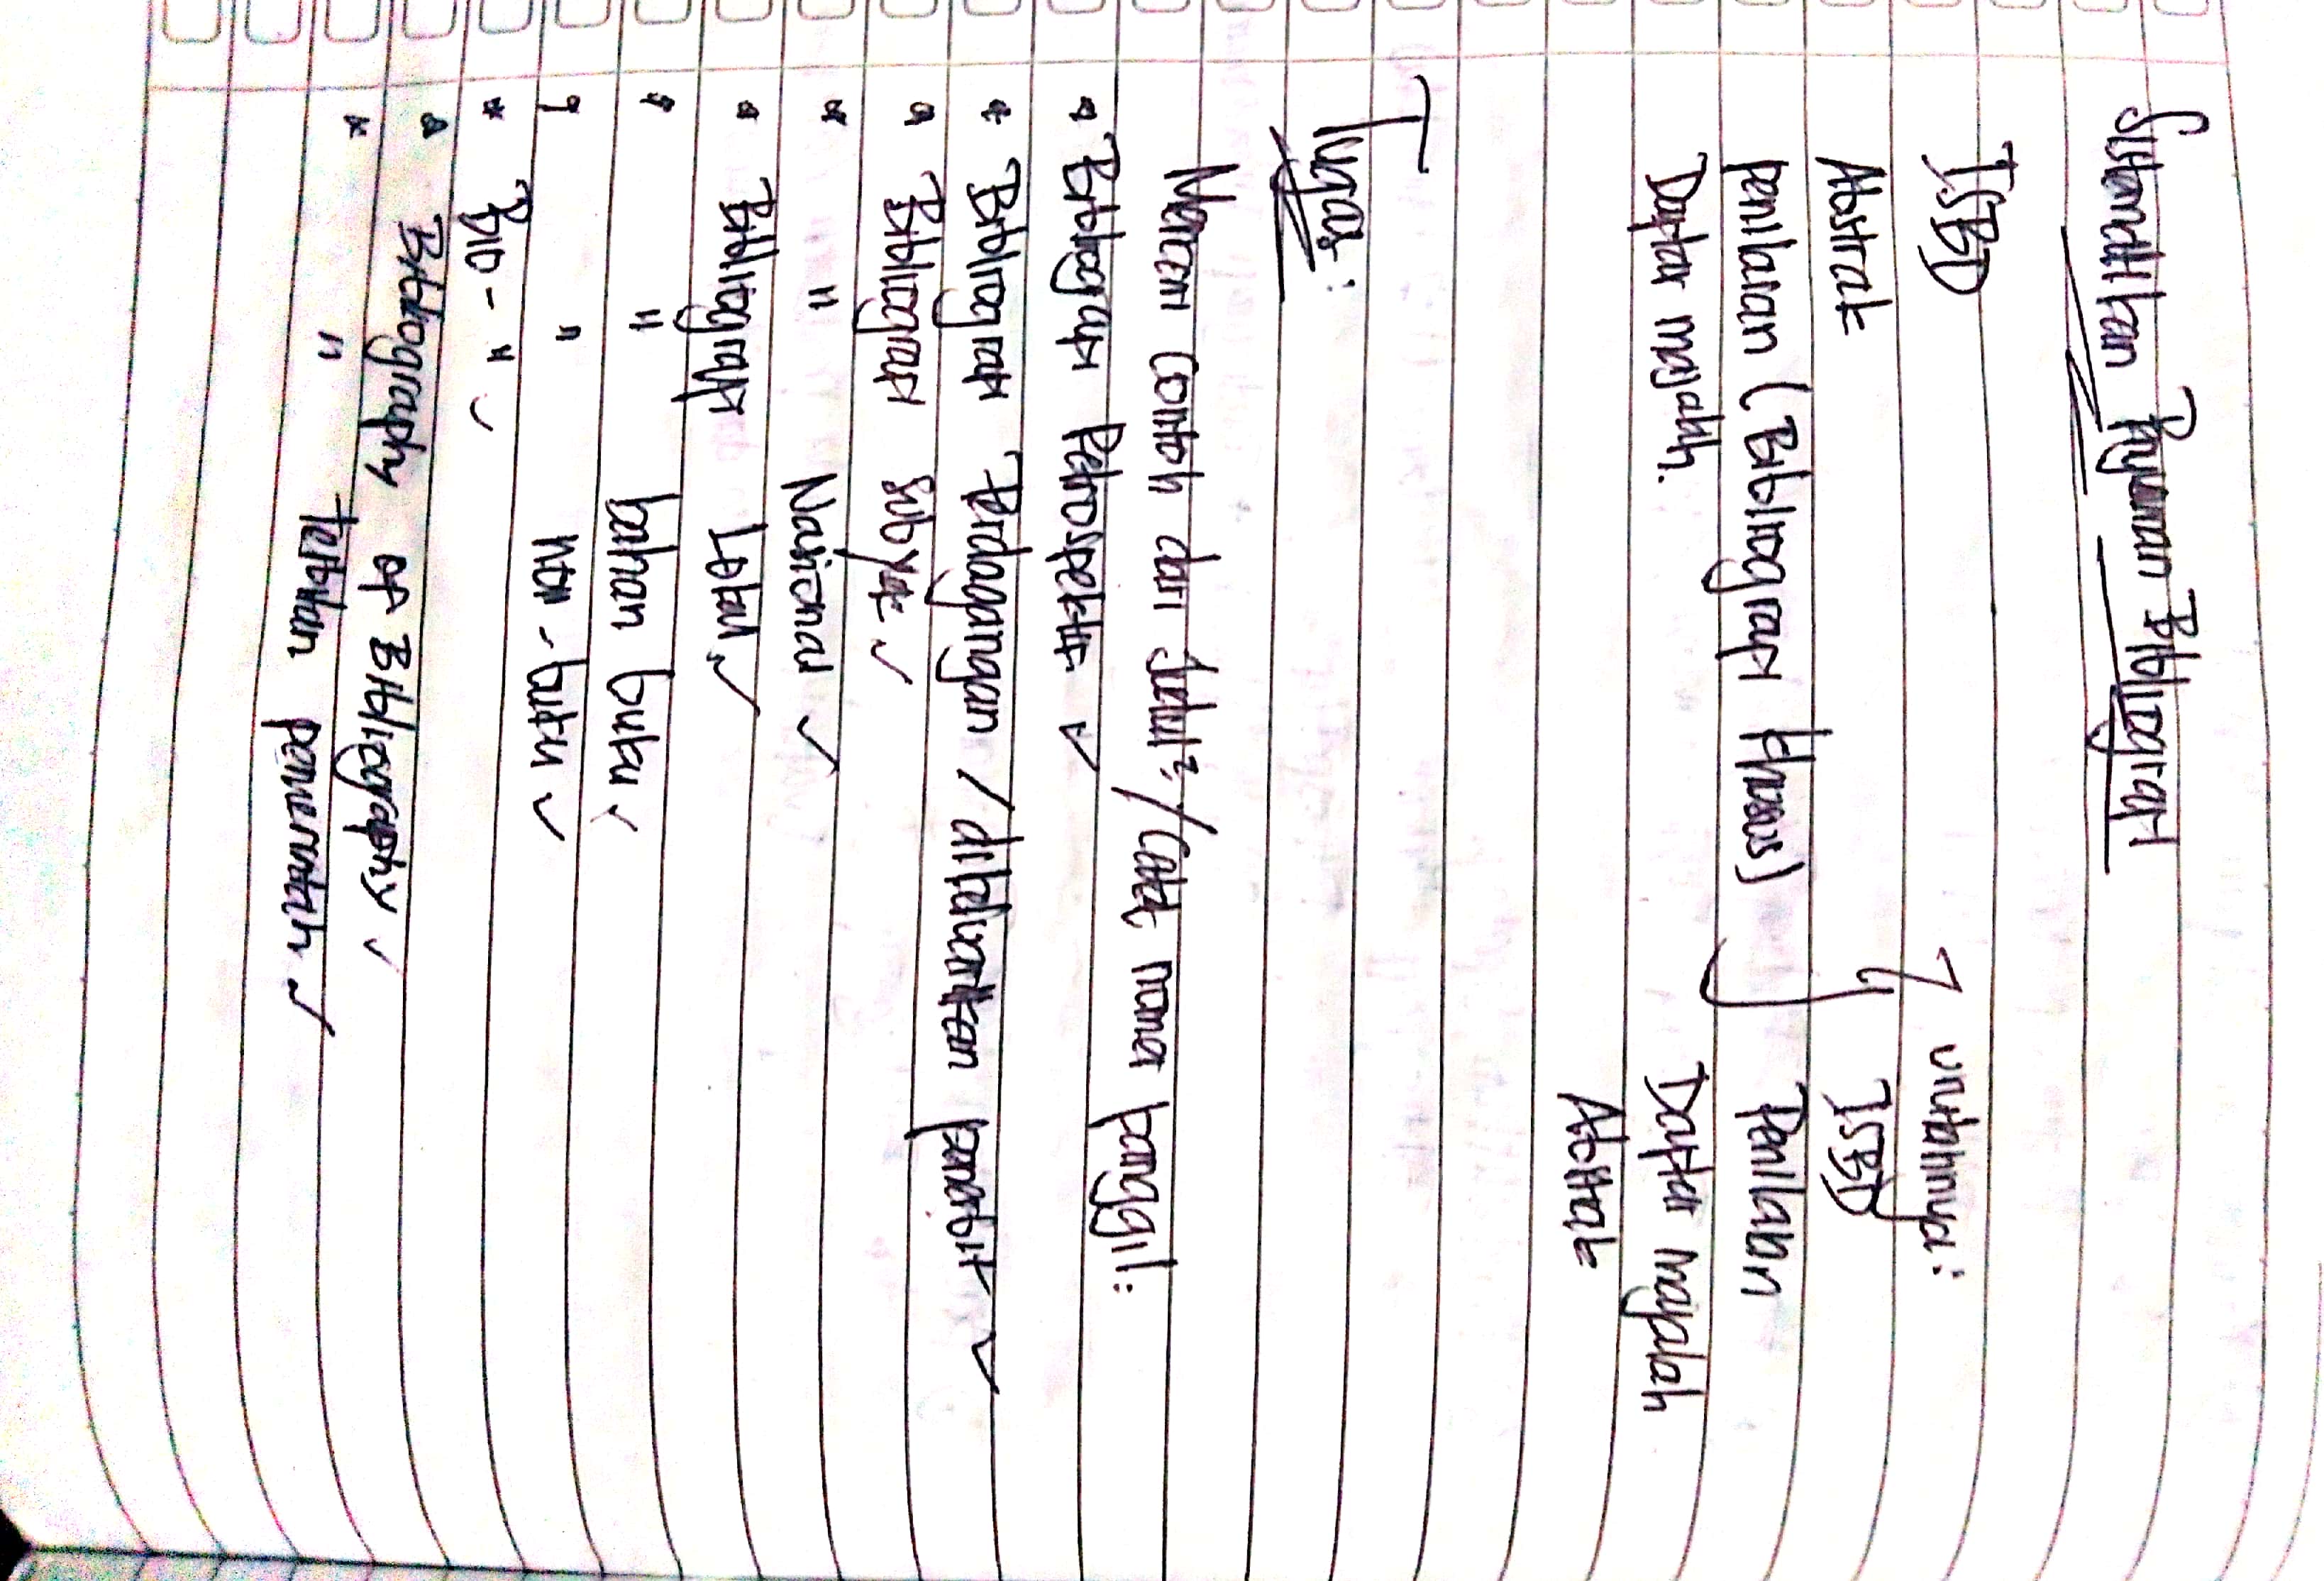 Sistematikan Penyusunan Bibliografi
ISBD
Abstrak
Penilaian (Bibliografi khusus)
Daftar majalah.
untuknya:
ISBD
Penilaian
Daftar majalah
Abstrak
Tugas:
Mencari contoh dan jelas²/catt nomor panggil:
Bibliografi Retrospektif ✓
Bibliografi Perdagangan / diklasifikasikan penerbit ✓
Bibliografi Subyek ✓
" Nasional ✓
Bibliografi Lokal ✓
" bahan buku ✓
" non-buku ✓
Bio - " ✓
Bibliography of Bibliography ✓
" Terbitan pemerintah ✓